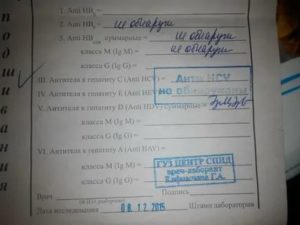 1. Anti HBe =
2. Anti HBs = не обнаруж
3. Anti HB cor суммарные = не обнаруж
класса M (Ig M) = не обнаруж
класса G (Ig G) =
III. Антитела к гепатиту C (Anti HCV) = Анти HCV
не обнаружены
IV. Антитела к гепатиту E (Anti HEV) =
V. Антитела к гепатиту D (Anti HDV) суммарные =
класса M (Ig M) =
класса G (Ig G) =
VI. Антитела к гепатиту A (Anti HAV) =
класса M (Ig M) =
класса G (Ig G) =
ГУЗ ЦЕНТР СПИД
врач-лаборант
Г.А.
Врач
Подпись
(Ф.И.О. разборчиво)
Дата исследования 08.12.2015 Штамп лаборатории
подшивания